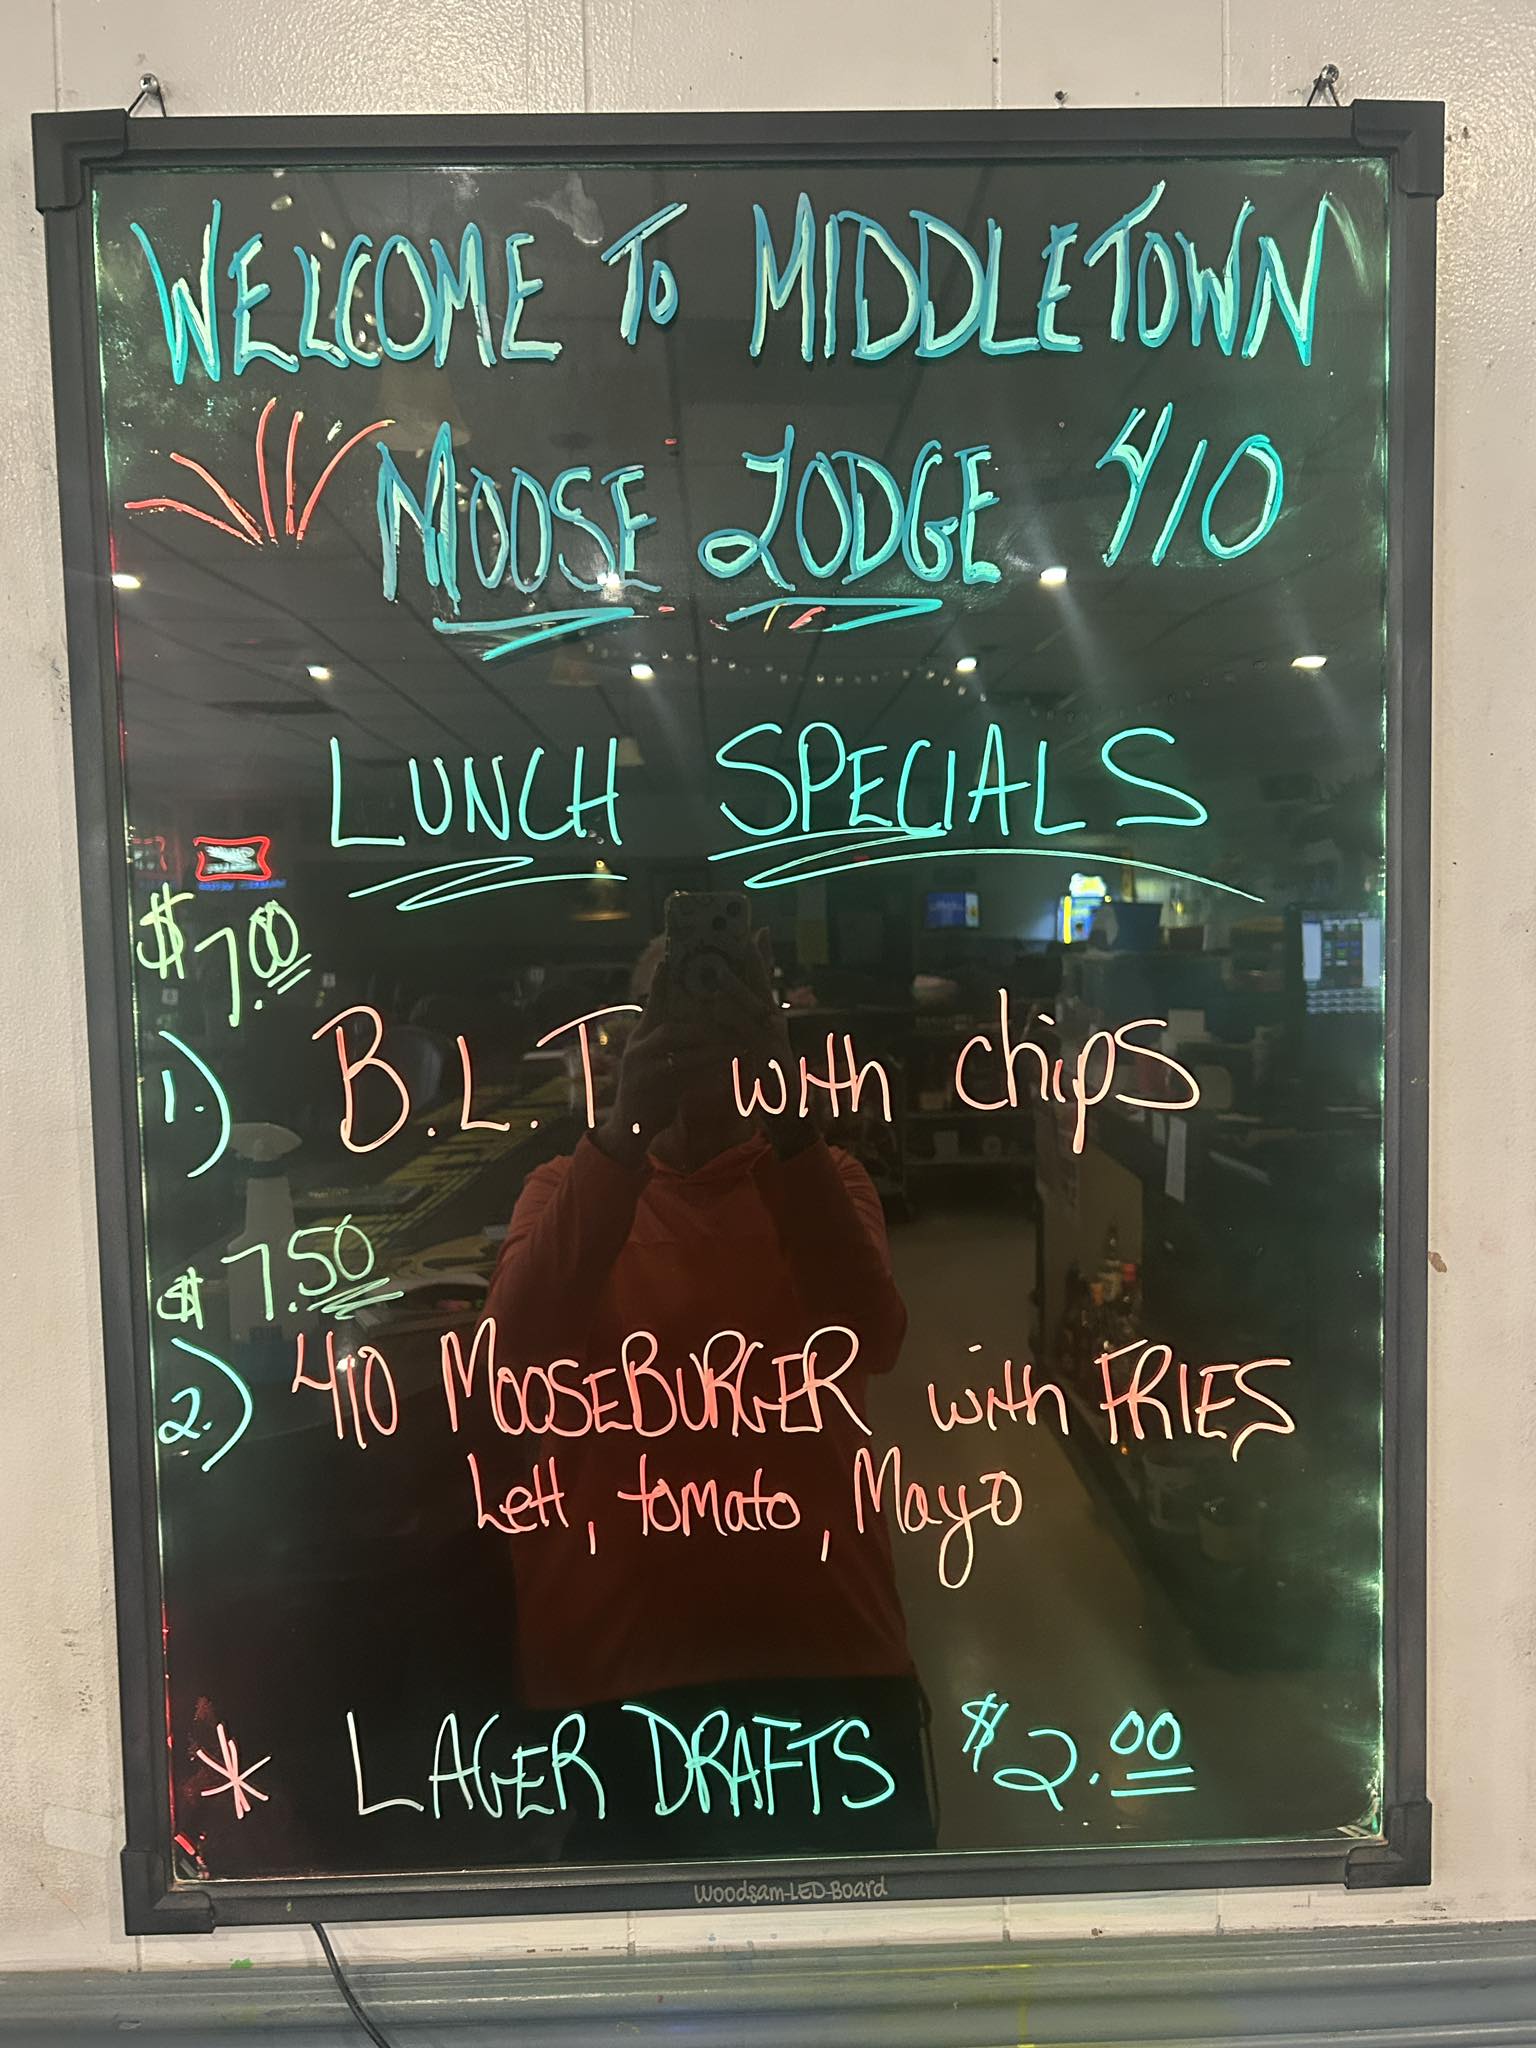 WELCOME TO MIDDLETOWN
MOOSE LODGE 410
LUNCH SPECIALS
$7.00
1.) B.L.T. with chips
$7.50
2.) 410 MOOSEBURGER with FRIES
Lett, tomato, Mayo
* LAGER DRAFTS $2.00
Woodsam-LED-Board